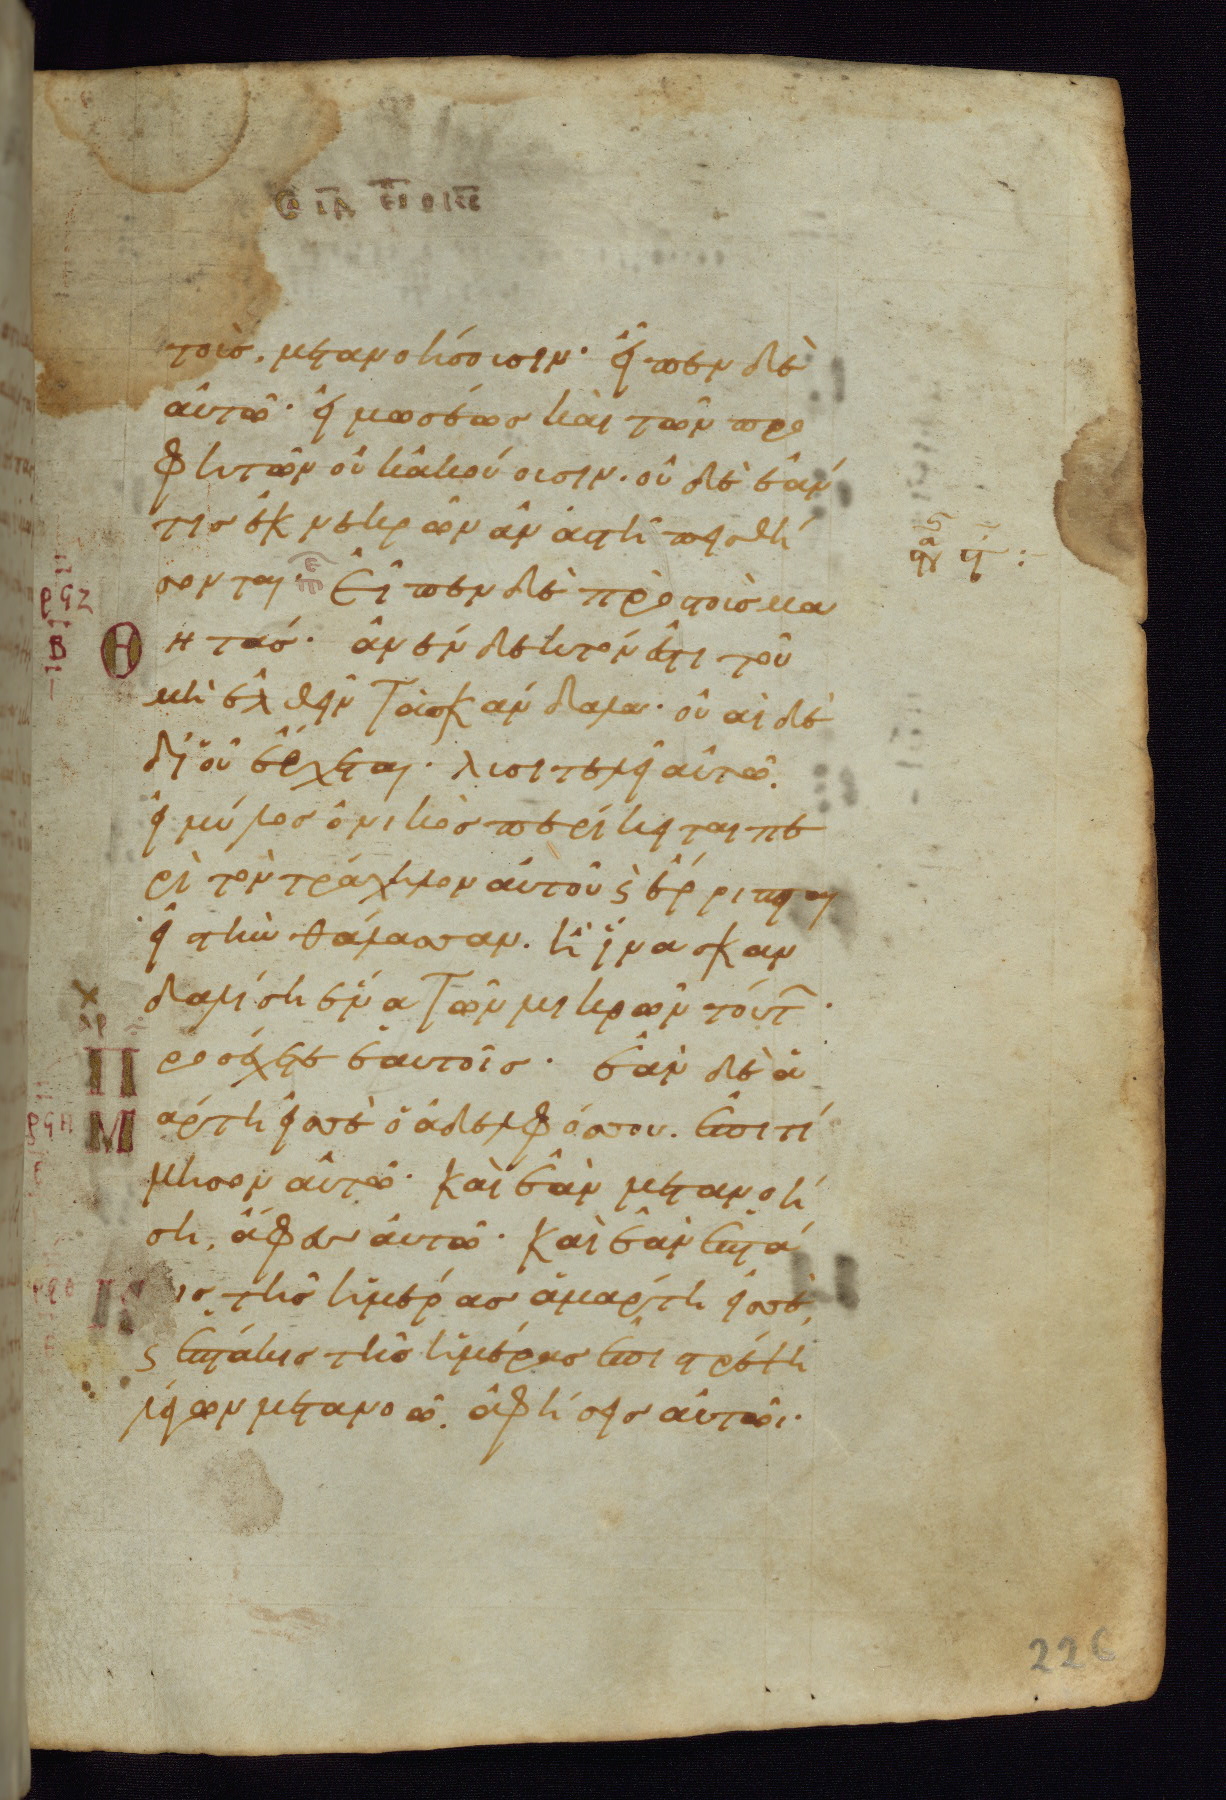 τοὺσ, μετανοήσουσιν· εἶπεν δὲ
αὐτῶ· εἰ μωσέωσ καὶ τῶν προ
φητῶν οὐκ ἀκούουσιν· οὐδὲ ἐάν
τισ ἐκ νεκρῶν ἀναστῆ πεισθή
σονται· Εἶπεν δὲ πρὸσ τοὺσ μα
ρϙζ
Β
Θητάσ· ἀνένδεκτόν ἐστι τοῦ
μὴ ἐλθεῖν τὰ σκάνδαλα· οὐαὶ δὲ
δι οὗ ἔρχεται· λυσιτελεῖ αὐτῶ.
εἰ μύλοσ ὀνικὸσ περίκειται πε
ρὶ τὸν τράχηλον αὐτοῦ ϗ ἔρριπται
εἰσ τὴν θάλασσαν. ἢ ἵνα σκαν
δαλίση ἕνα τῶν μικρῶν τούτ·
Προσέχετε ἑαυτοῖσ· ἐὰν δὲ ἁ
ρϙη
Μάρτη εἰσ σὲ ὁ ἀδελφόσ σου. ἐπιτί
μησον αὐτῶ· καὶ ἐὰν μετανοή
ση, ἄφεσ αὐτῶ· καὶ ἐὰν ἑπτά
κισ τῆσ ἡμέρασ ἁμάρτη εἰσ σὲ,
ϗ ἑπτάκισ τῆσ ἡμέρασ ἐπιστρέψη
λέγων μετανοῶ. ἀφήσεισ αὐτῶι·
226